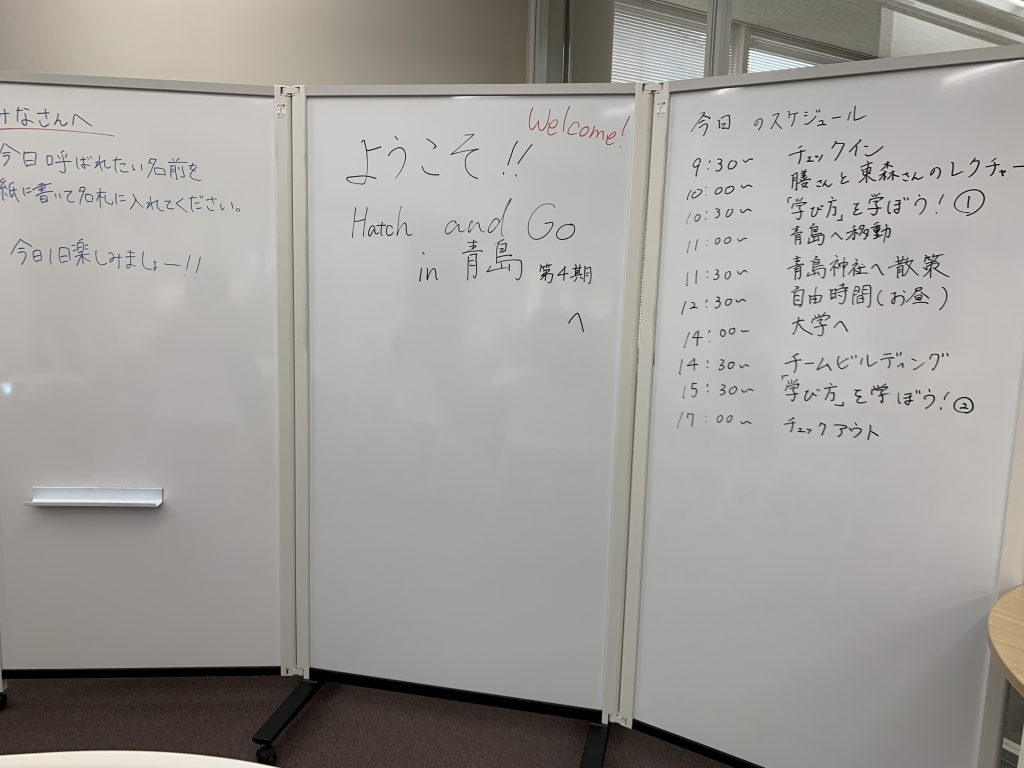 みなさんへ
今日呼ばれたい名前を
紙に書いて名札に入れてください。
今日1日楽しみましょー!!
Welcome!
ようこそ!!
Hatch and Go
in 青島 第4期
へ
今日のスケジュール
9:30〜 チェックイン
10:00〜 膳さんと東森さんのレクチャー
10:30〜 「学び方」を学ぼう!①
11:00〜 青島へ移動
11:30〜 青島神社へ散策
12:30〜 自由時間(お昼)
14:00〜 大学へ
14:30〜 チームビルディング
15:30〜 「学び方」を学ぼう!②
17:00〜 チェックアウト